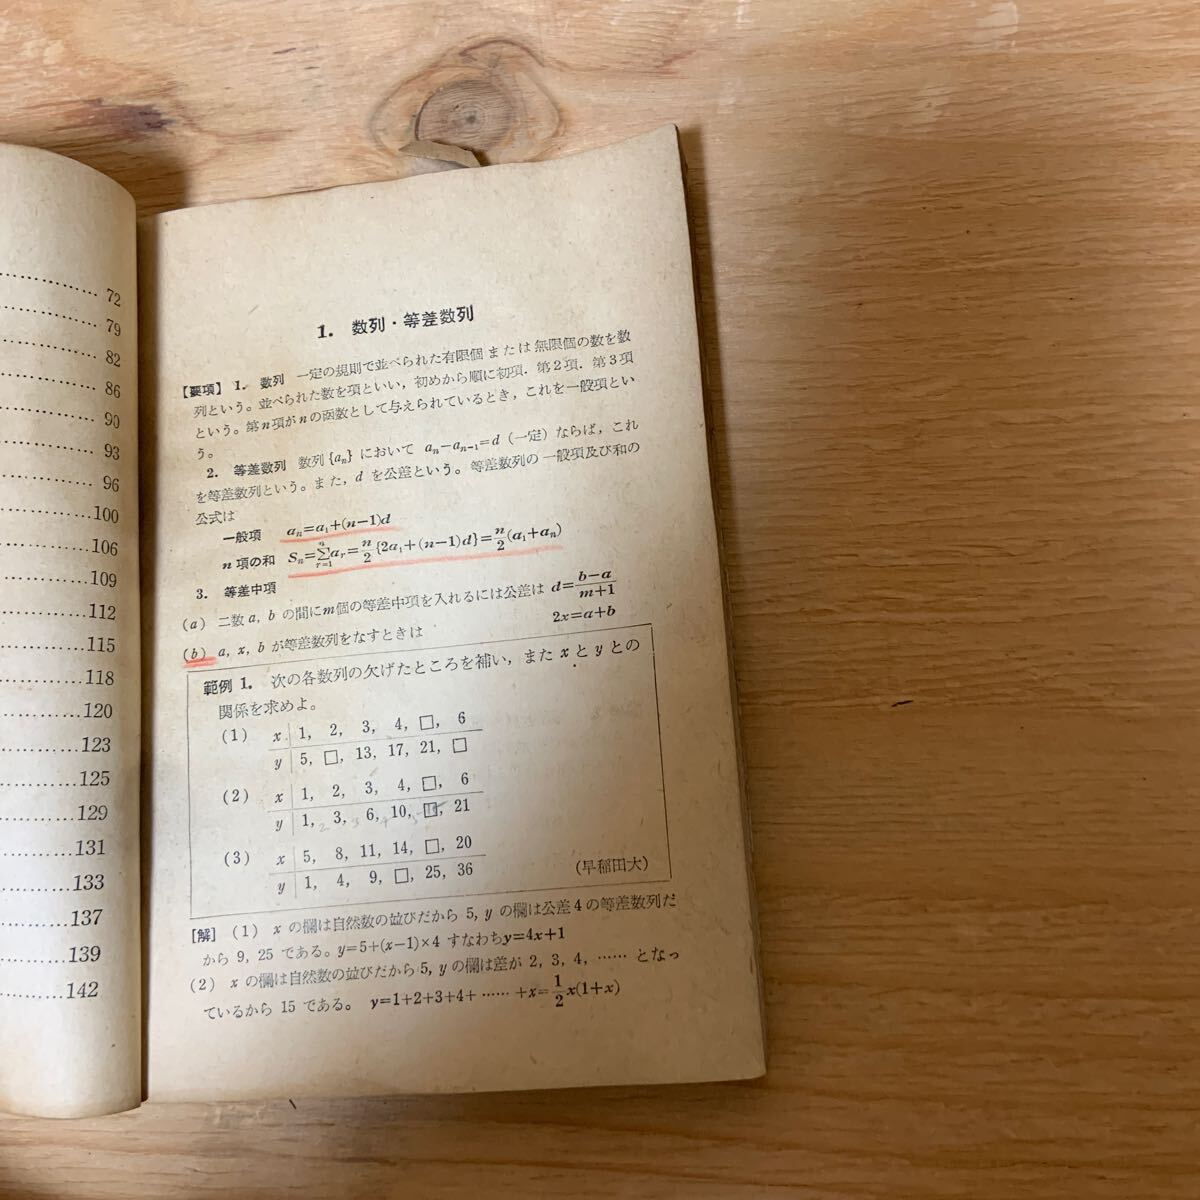 72
79
82
86
90
93
96
100
106
109
112
115
118
120
123
125
129
131
133
137
139
142
1. 数列・等差数列
【要項】1. 数列 一定の規則で並べられた有限個または無限個の数を数
列という。並べられた数を項といい，初めから順に初項．第2項．第3項
という。第n項がnの函数として与えられているとき，これを一般項とい
う。
2. 等差数列 数列{aₙ}において aₙ−aₙ₋₁=d（一定）ならば，これ
を等差数列という。また，d を公差という。等差数列の一般項及び和の
公式は
一般項 aₙ=a₁+(n−1)d
n項の和 Sₙ=∑ⁿᵣ₌₁aᵣ=n/2{2a₁+(n−1)d}=n/2(a₁+aₙ)
3. 等差中項
(a) 二数a, bの間にm個の等差中項を入れるには公差は d=(b−a)/(m+1)
(b) a, x, b が等差数列をなすときは 2x=a+b
範例1. 次の各数列の欠げたところを補い，またxとyとの
関係を求めよ。
(1) x 1, 2, 3, 4, □, 6
y 5, □, 13, 17, 21, □
(2) x 1, 2, 3, 4, □, 6
y 1, 3, 6, 10, □, 21
(3) x 5, 8, 11, 14, □, 20
y 1, 4, 9, □, 25, 36
（早稲田大）
[解] (1) x の欄は自然数の並びだから 5, y の欄は公差4の等差数列だ
から 9, 25 である。y=5+(x−1)×4 すなわちy=4x+1
(2) x の欄は自然数の並びだから5, y の欄は差が 2, 3, 4, …… となっ
ているから 15 である。 y=1+2+3+4+ …… +x=1/2x(1+x)